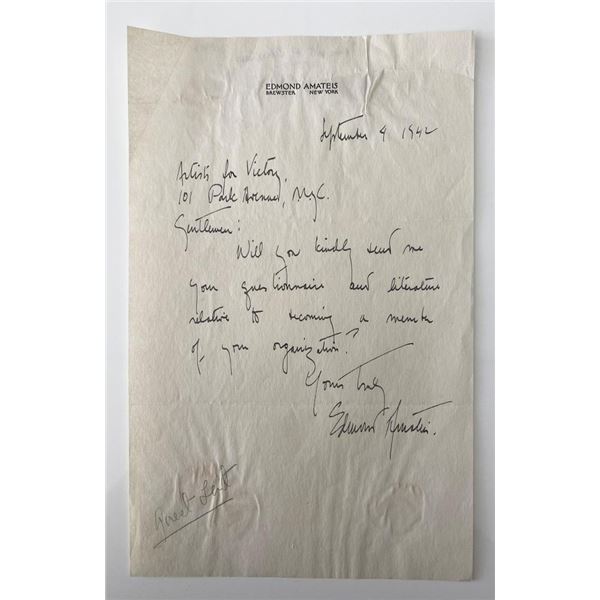 EDMOND AMATEIS
BREWSTER NEW YORK
September 9 1942
Artists for Victory,
101 Park Avenue, N.Y.C.
Gentlemen:
Will you kindly send me
your questionnaire and literature
relative to becoming a member
of your organization?
Yours Truly
Edmond Amateis.
Sent